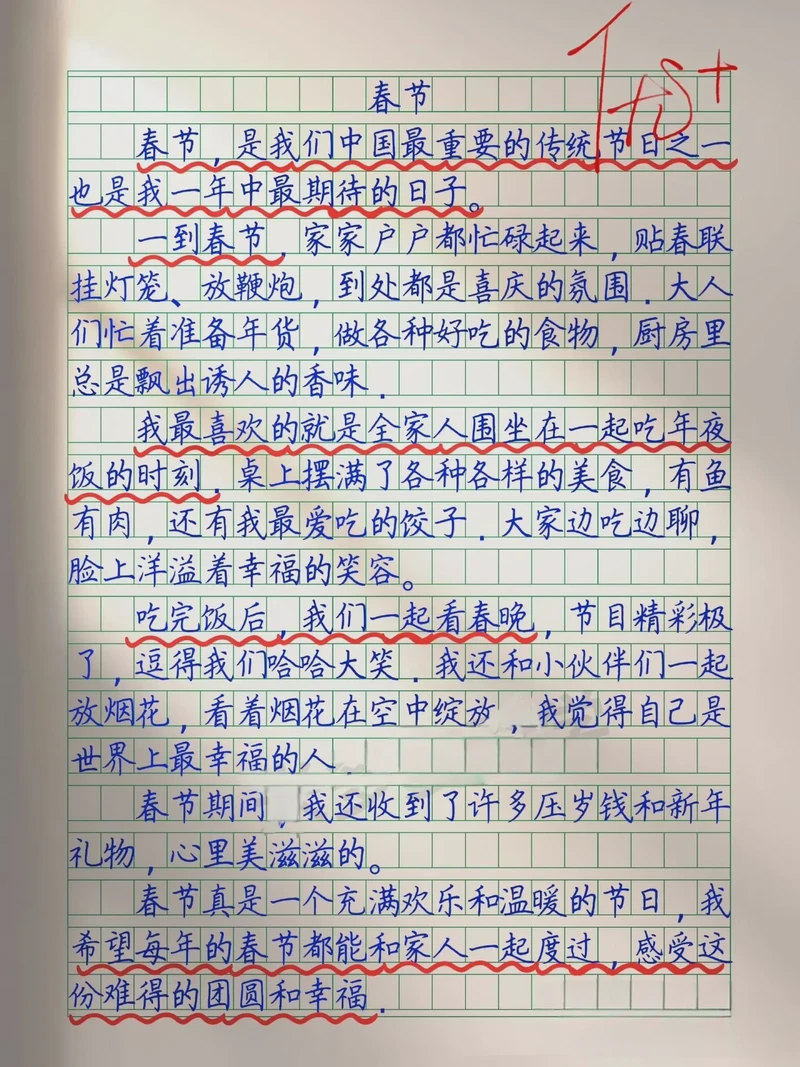 春节
春节，是我们中国最重要的传统节日之一
也是我一年中最期待的日子。
一到春节，家家户户都忙碌起来，贴春联
挂灯笼、放鞭炮，到处都是喜庆的氛围．大人
们忙着准备年货，做各种好吃的食物，厨房里
总是飘出诱人的香味．
我最喜欢的就是全家人围坐在一起吃年夜
饭的时刻．桌上摆满了各种各样的美食，有鱼
有肉，还有我最爱吃的饺子．大家边吃边聊，
脸上洋溢着幸福的笑容。
吃完饭后，我们一起看春晚，节目精彩极
了，逗得我们哈哈大笑．我还和小伙伴们一起
放烟花，看着烟花在空中绽放，我觉得自己是
世界上最幸福的人．
春节期间，我还收到了许多压岁钱和新年
礼物，心里美滋滋的。
春节真是一个充满欢乐和温暖的节日，我
希望每年的春节都能和家人一起度过，感受这
份难得的团圆和幸福．